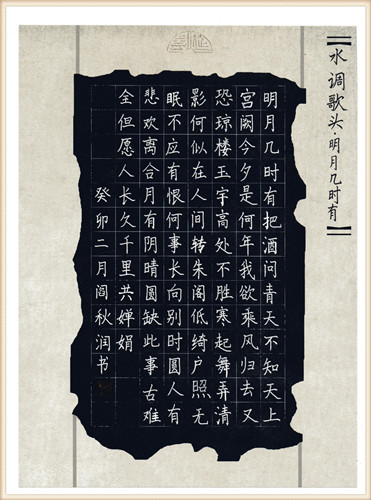 【水调歌头·明月几时有】
明月几时有把酒问青天不知天上
宫阙今夕是何年我欲乘风归去又
恐琼楼玉宇高处不胜寒起舞弄清
影何似在人间转朱阁低绮户照无
眠不应有恨何事长向别时圆人有
悲欢离合月有阴晴圆缺此事古难
全但愿人长久千里共婵娟
癸卯二月阎秋润书